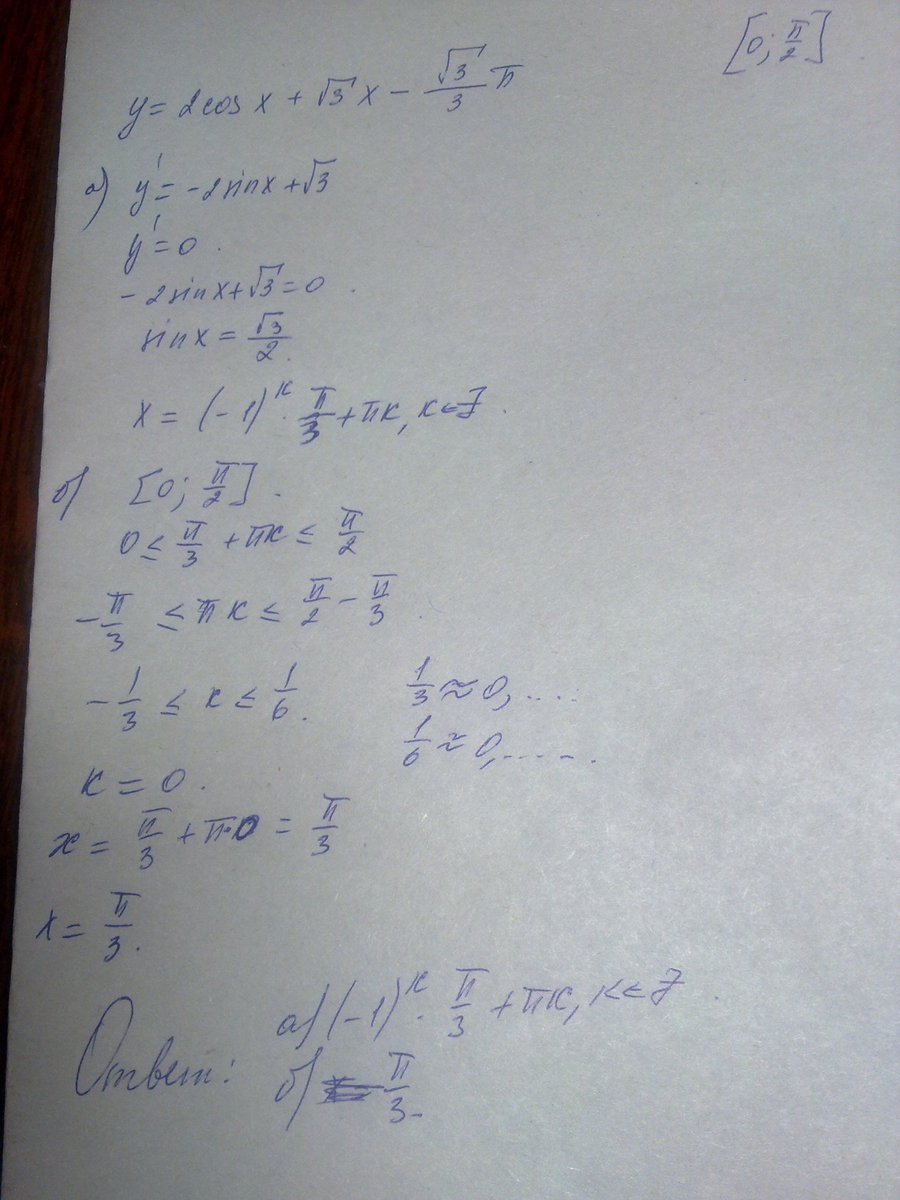 [0; π/2]
y = 2cos x + √3 x − √3/3 π
а) y' = -2sinx + √3
y' = 0.
- 2sinx + √3 = 0.
sinx = √3/2.
x = (-1)^к · π/3 + πк, к ∈ Z.
б) [0; π/2].
0 ≤ π/3 + πк ≤ π/2
- π/3 ≤ πк ≤ π/2 - π/3.
- 1/3 ≤ к ≤ 1/6. 1/3 ≈ 0,....
1/6 ≈ 0,.....
к = 0.
x = π/3 + π·0 = π/3
x = π/3.
Ответ: а) (-1)^к · π/3 + πк, к ∈ Z.
б) π/3.